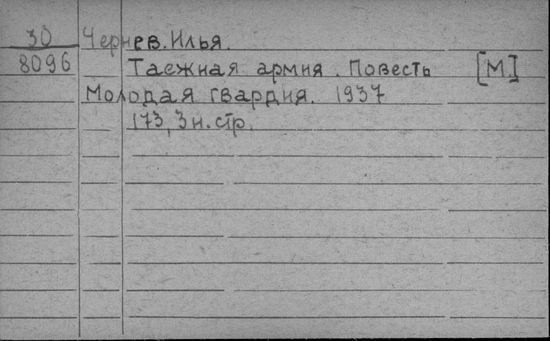 30 Чернев. Илья.
8096 Таежная армия. Повесть [М]
Молодая гвардия. 1937
173, 3 н. стр.